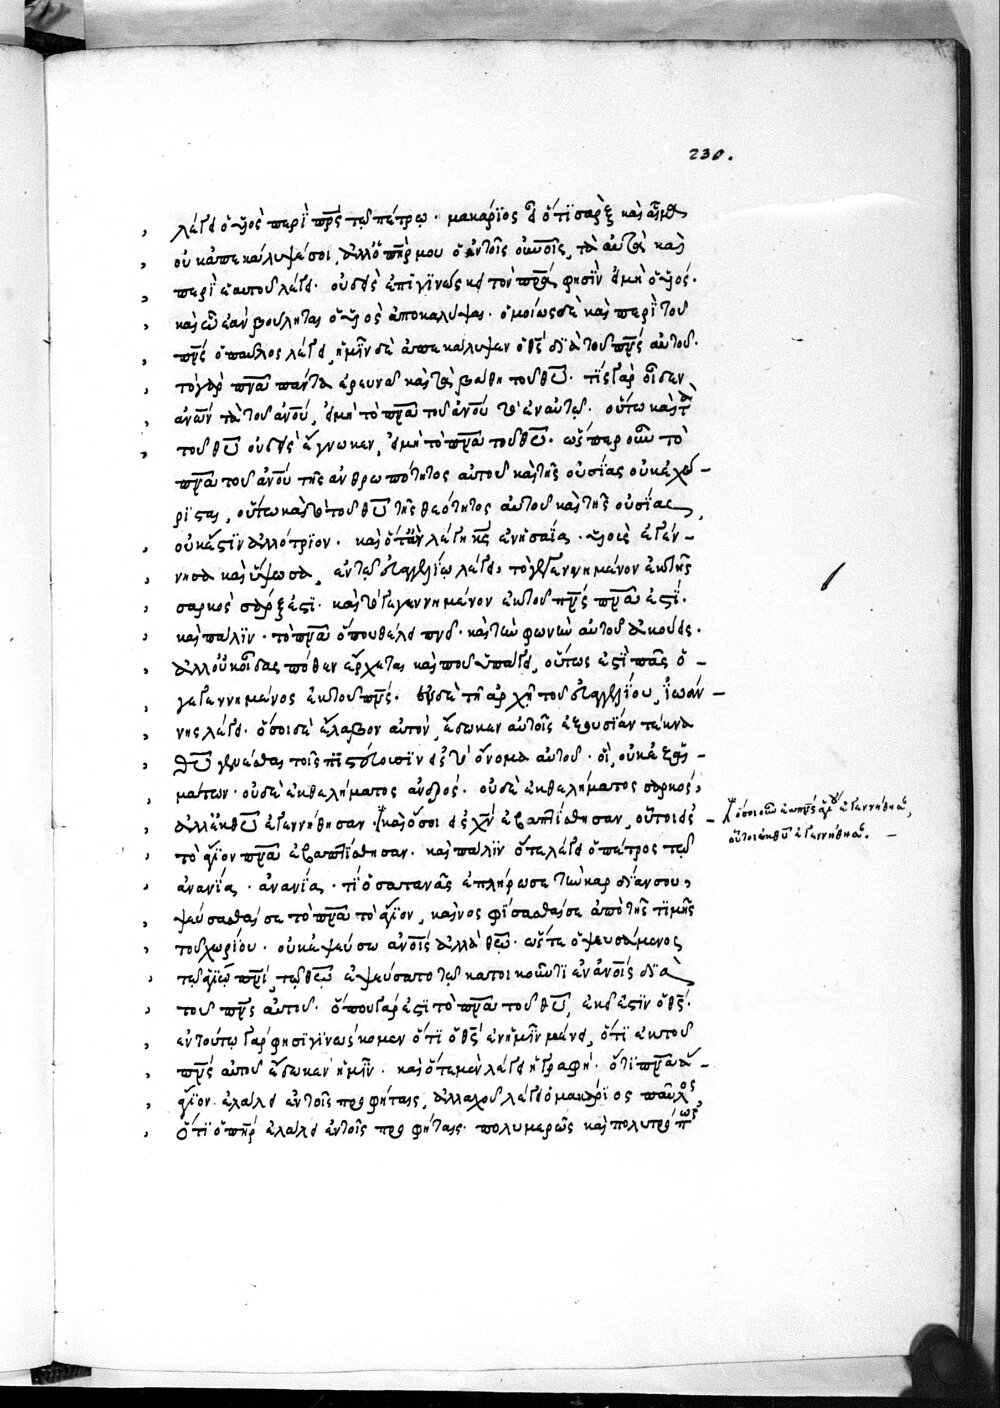 230.
λέγει ὁ υἱὸς περὶ πρς τῷ πέτρῳ· μακάριος εἶ ὅτι σαρξ καὶ αἷμα
οὐκ ἀπεκάλυψέ σοι, ἀλλ' ὁ πηρ μου ὁ ἐν τοῖς οὐνοῖς, τὰ αὐτὰ καὶ
περὶ ἑαυτοῦ λέγει· οὐδεὶς ἐπιγινώσκει τὸν πρα φησὶν εἰ μὴ ὁ υἱός·
καὶ ᾧ ἐὰν βούληται ὁ υἱὸς ἀποκαλύψαι· ὁμοίως δὲ καὶ περὶ τοῦ
πνς ὁ παῦλος λέγει, ἡμῖν δὲ ἀπεκάλυψεν ὁ θς διὰ τοῦ πνς αὐτοῦ·
τὸ γὰρ πνα πάντα ἐρευνᾶ καὶ τὰ βάθη τοῦ θυ· τίς γὰρ οἶδεν
ἀνων τὰ τοῦ ἀνου, εἰ μὴ τὸ πνα τοῦ ἀνου τὸ ἐν αὐτῷ· οὕτω καὶ τὰ
τοῦ θυ οὐδεὶς ἔγνωκεν, εἰ μὴ τὸ πνα τοῦ θυ· ὥσπερ οὖν τὸ
πνα τοῦ ἀνου τῆς ἀνθρωπότητος αὐτοῦ καὶ τῆς οὐσίας οὐ κεχώ–
ρισται, οὕτω καὶ τὸ τοῦ θυ τῆς θεότητος αὐτοῦ καὶ τῆς οὐσίας,
οὐκ ἔστιν ἀλλότριον· καὶ ὅταν λέγῃ κς ἐν ἡσαΐα· υἱοὺς ἐγέν–
νησα καὶ ὕψωσα, ἐν τῷ εὐαγγελίῳ λέγει, τὸ γεγεννημένον ἐκ τῆς
σαρκὸς σάρξ ἐστι· καὶ τὸ γεγεννημένον ἐκ τοῦ πνς πνα ἐστι·
καὶ πάλιν· τὸ πνα ὅπου θέλει πνεῖ· καὶ τὴν φωνὴν αὐτοῦ ἀκούεις·
ἀλλ' οὐκ οἶδας πόθεν ἔρχεται καὶ ποῦ ὑπάγει, οὕτως ἐστὶ πᾶς ὁ –
γεγεννημένος ἐκ τοῦ πνς· ἐν δὲ τῆ ἀρχῆ τοῦ εὐαγγελίου, ἰωάν–
νης λέγει· ὅσοι δὲ ἔλαβον αὐτὸν, ἔδωκεν αὐτοῖς ἐξουσίαν τέκνα
θυ γενέσθαι τοῖς πιστεύουσιν εἰς τὸ ὄνομα αὐτοῦ· οἳ, οὐκ ἐξ αἱ–
μάτων· οὐδὲ ἐκ θελήματος ἀνδρός· οὐδὲ ἐκ θελήματος σαρκός,
ἀλλ' ἐκ θυ ἐγεννήθησαν· καὶ ὅσοι εἰς χν ἐβαπτίσθησαν, οὗτοι εἰς –
τὸ ἅγιον πνα ἐβαπτίσθησαν· καὶ πάλιν ὅτε λέγει ὁ πέτρος τῷ
ἀνανία· ἀνανία· τί ὁ σατανᾶς ἐπλήρωσε τὴν καρδίαν σου,
ψεύσασθαί σε τὸ πνα τὸ ἅγιον, καὶ νοσφίσασθαί σε ἀπὸ τῆς τιμῆς
τοῦ χωρίου· οὐκ ἐψεύσω ἀνοις ἀλλὰ θω· ὥστε ὁ ψευσάμενος
τῷ ἁγίῳ πνι, τῷ θω ἐψεύσατο τῷ κατοικοῦντι ἐν ἀνοις διὰ
τοῦ πνς αὐτοῦ· ὅπου γάρ ἐστι τὸ πνα τοῦ θυ, ἐκεῖ ἐστιν ὁ θς·
ἐν τούτῳ γὰρ φησὶ γινώσκομεν ὅτι ὁ θς ἐν ἡμῖν μένει, ὅτι ἐκ τοῦ
πνς αὐτοῦ ἔδωκεν ἡμῖν· καὶ ὅτε μὲν λέγει ἡ γραφή· ὅτι πνα
ἅγιον ἐλάλει ἐν τοῖς προφήταις, ἀλλαχοῦ λέγει ὁ μακάριος παῦλος,
ὅτι ὁ πηρ ἐλάλει ἐν τοῖς προφήταις· πολυμερῶς καὶ πολυτρόπως
ὅσοι οὖν ἐκ πνς ἁγίου ἐγεννήθησαν,
οὗτοι ἐκ θυ ἐγεννήθησαν. –